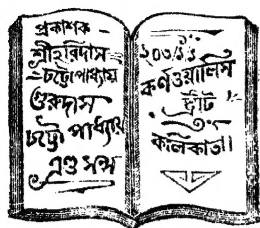 প্রকাশক-
শ্রীহরিদাস
চট্টোপাধ্যায়
গুরুদাস
চট্টোপাধ্যায়
এণ্ড সন্স
২০৩/১/১
কর্ণওয়ালিস
ষ্ট্রীট
কলিকাতা।